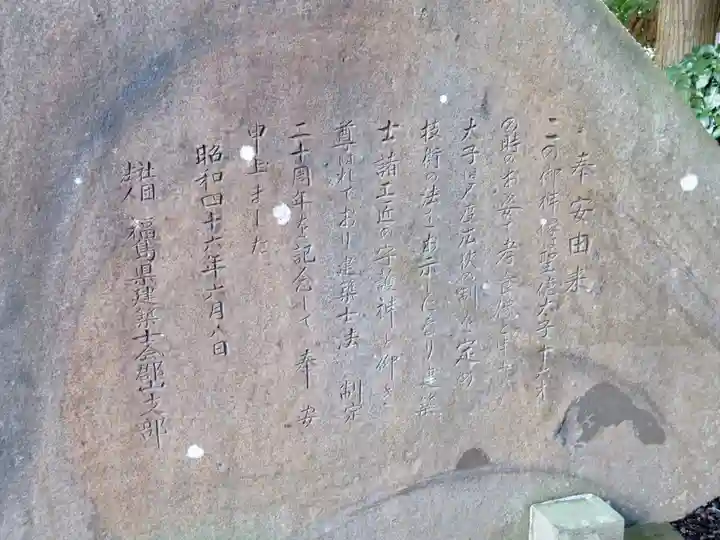 奉安由来
この御神像は聖徳太子十六才
の時のお姿で孝養像と申し
太子は尺度瓦状の制を定め
技術の法をお示しになり建築
士諸工匠の守護神と仰ぎ
尊ばれており建築士法 制定
二十周年を記念して奉安
申上ました
昭和四十六年六月八日
社団法人 福島県建築士会郡山支部